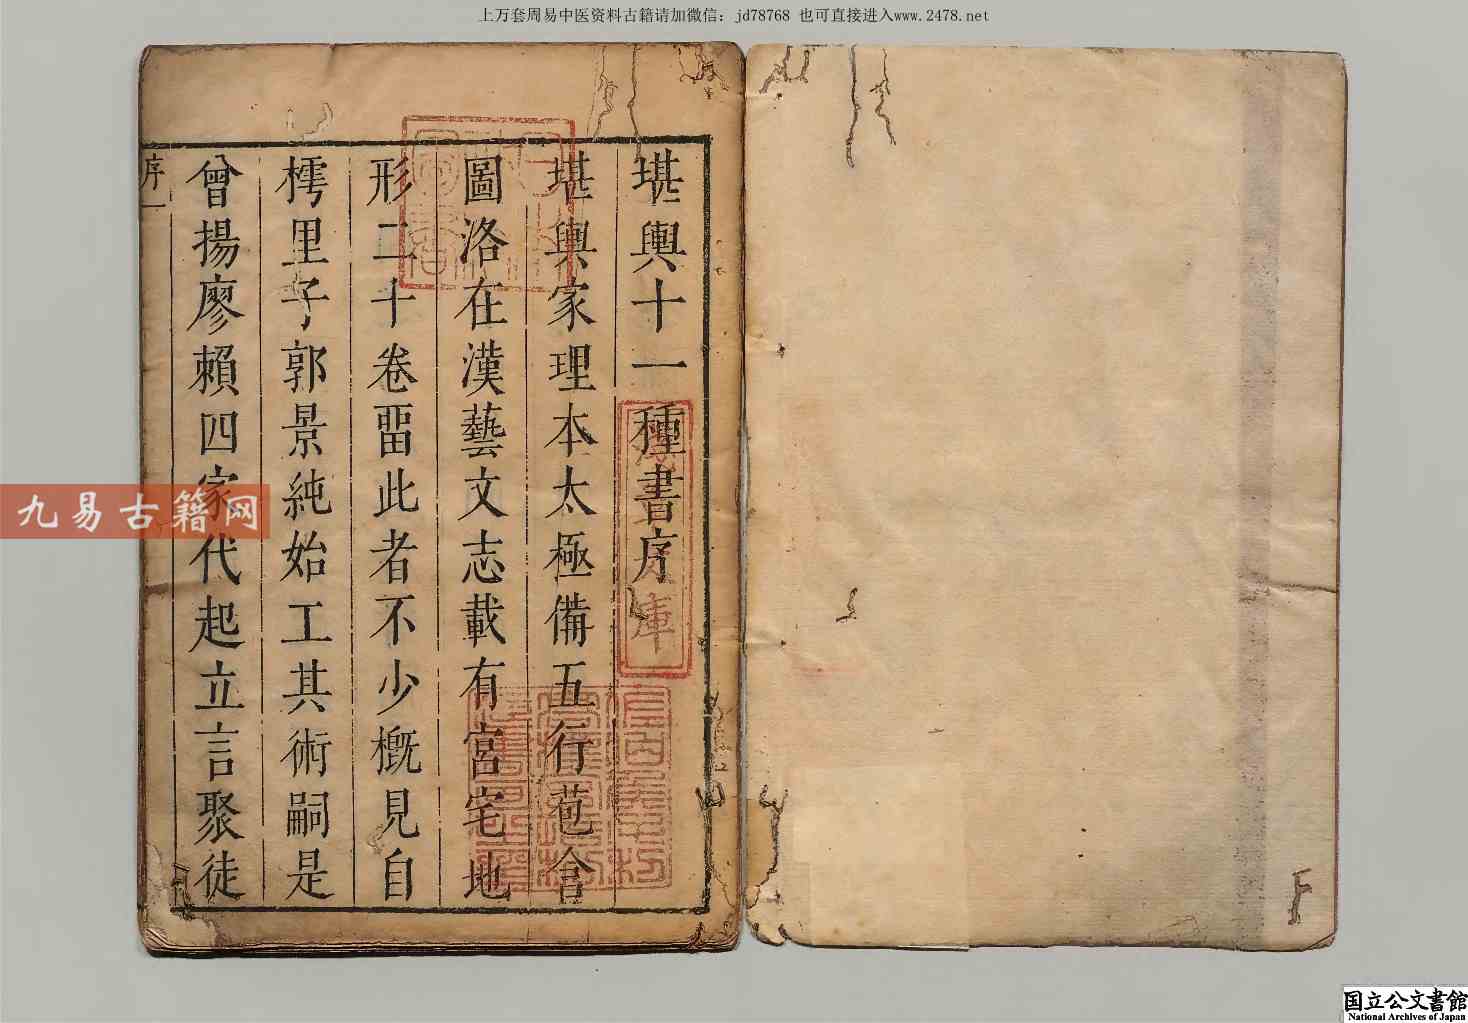 上万套周易中医资料古籍请加微信：jd78768 也可直接进入www.2478.net
堪輿十一種書序
堪輿家理本太極備五行苞含
圖洛在漢藝文志載有宮宅地
形二十卷畱此者不少概見自
樗里子郭景純始工其術嗣是
曾揚廖賴四家代起立言聚徒
序一
庫
九易古籍网
国立公文書館
National Archives of Japan